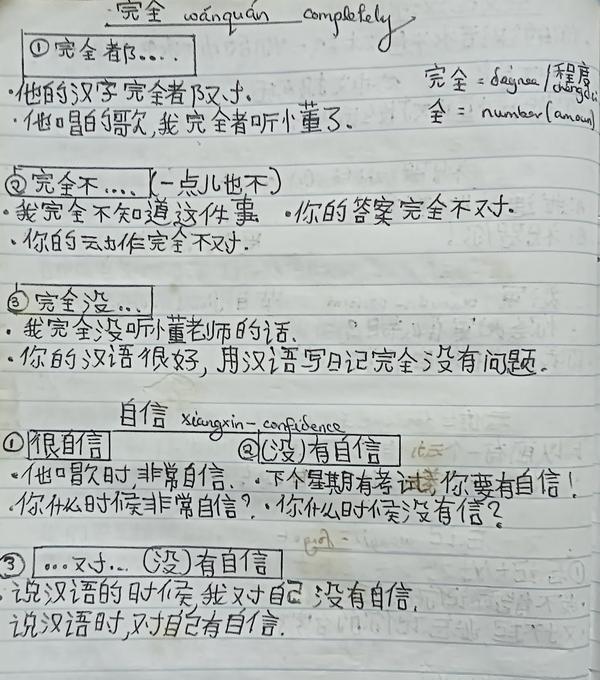 完全 wánquán completely
① 完全都....
·他的汉字完全都对.
·他唱的歌,我完全都听懂了.
完全 = degree/程度 chengdu
全 = number (amoun)
② 完全不.... (一点儿也不)
·我完全不知道这件事 ·你的答案完全不对.
·你的动作完全不对.
③ 完全没...
·我完全没听懂老师的话.
·你的汉语很好,用汉语写日记完全没有问题.
自信 xiangxin - confidence
① 很自信 ② (没)有自信
·他唱歌时,非常自信. ·下个星期有考试 你要有自信!
·你什么时候非常自信? ·你什么时候没有信?
③ ...对... (没)有自信
·说汉语的时候,我对自己没有自信.
说汉语时,对自己有自信.